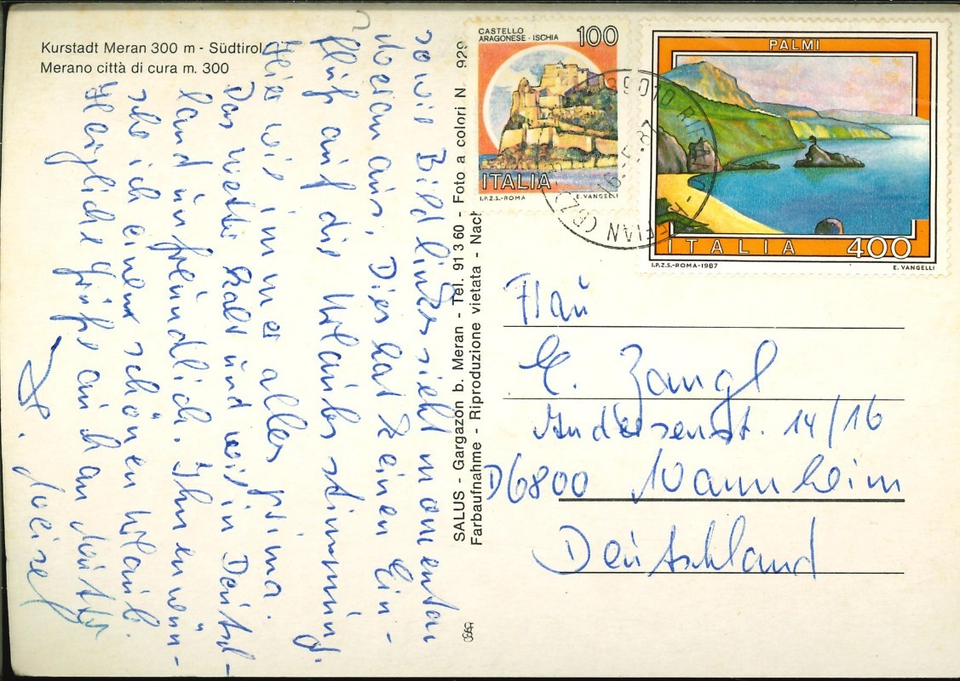 Kurstadt Meran 300 m - Südtirol
Merano città di cura m. 300
sowie Bild links sieht momentan
Meran aus, Dies hat keinen Ein-
fluß auf die Urlaubsstimmung.
Hier wie immer alles prima.
Das Wetter kalt und wie in Deutsch-
land unfreundlich. Ihnen wün-
sche ich einen schönen Urlaub.
Herzliche Grüße auch an Mutter
SALUS - Gargazon b. Meran - Tel. 91 3 60 - Foto a colori N. 929
Farbaufnahme - Riproduzione vietata - Nach
CASTELLO
ARAGONESE - ISCHIA
100
ITALIA
I.P.Z.S.-ROMA E. VANGELLI
PALMI
ITALIA 400
I.P.Z.S.-ROMA-1987 E. VANGELLI
Frau
E. Zangl
Andersenst. 14/16
D6800 Mannheim
Deutschland